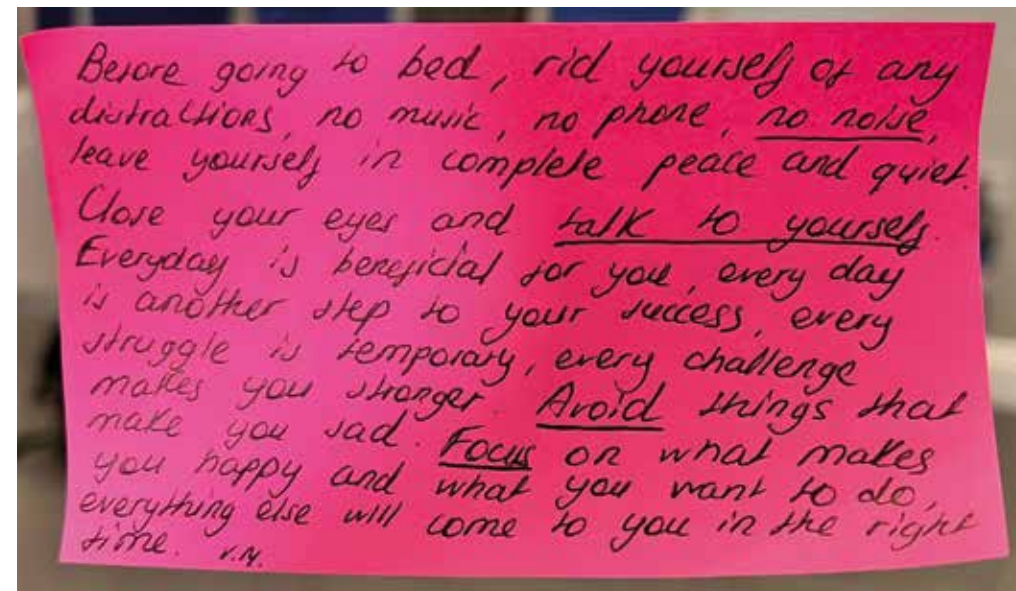 Before going to bed, rid yourself of any
distractions, no music, no phone, no noise,
leave yourself in complete peace and quiet.
Close your eyes and talk to yourself.
Everyday is beneficial for you, every day
is another step to your success, every
struggle is temporary, every challenge
makes you stronger. Avoid things that
make you sad. Focus on what makes
you happy and what you want to do,
everything else will come to you in the right
time. V.N.